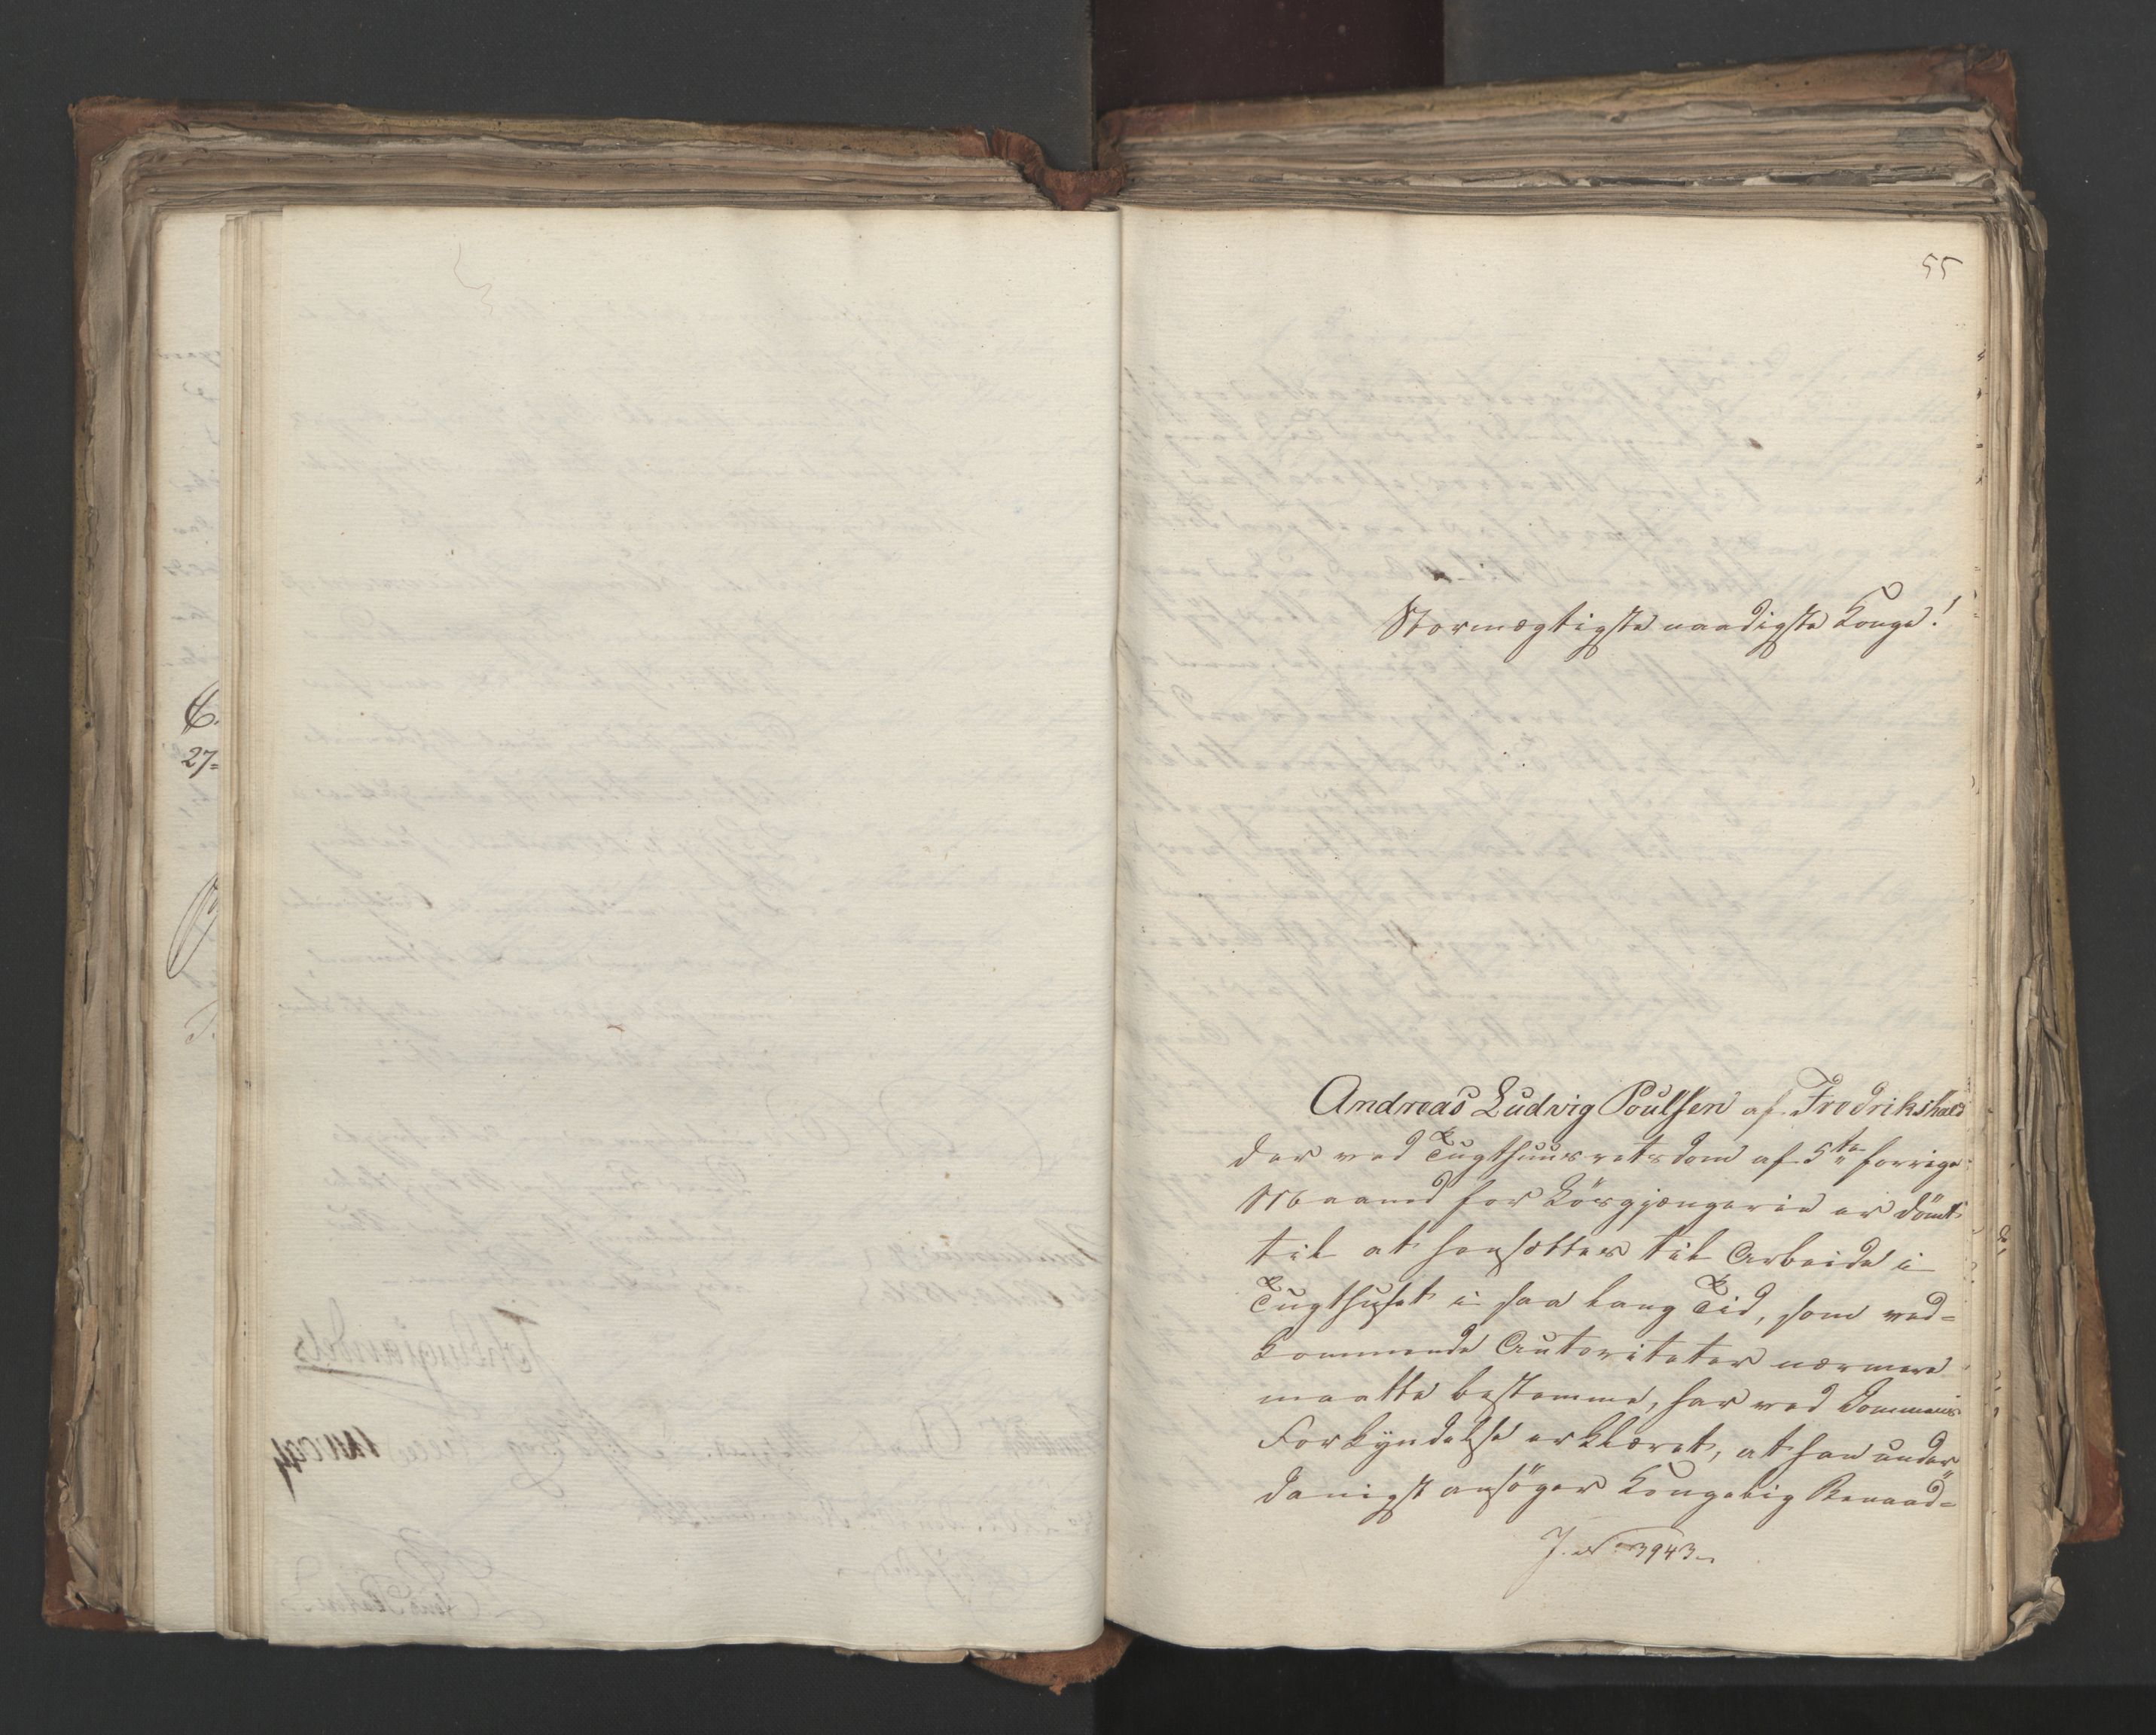 55
Stormægtigste naadigste Konge!
Andreas Ludvig Poulsen af Fredrikshald
der ved Tugthuusretsdom af 5te forrige
Maaned for Lösgjængerie er dömt
til at hensættes til Arbeide i
Tugthuset i saa lang Tid, som ved-
kommende Autoriteter nærmere
maatte bestemme, har ved Dommens
Forkyndelse erklæret, at han under-
danigst ansöger Kongelig Benaad-
J. No 3943
C.
27-